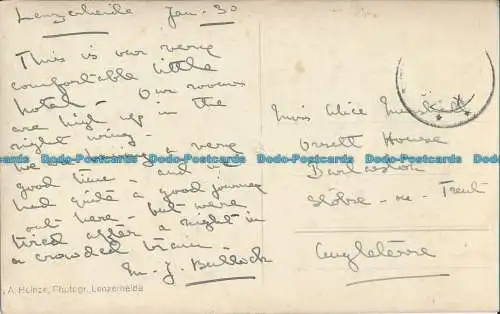 Lenzerheide Jan - 30
This is our very
comfortable little
hotel - Our rooms
are high up in the
right wing.
We are having a very
good time - and we
had quite a good journey
out here - but were
tired after a night in
a crowded train -
M. J. Bullock
Miss Alice
House
Barlaston
Stoke - on - Trent
Angleterre
A. Heinze, Photogr. Lenzerheide
Dodo-Postcards Dodo-Postcards Dodo-Postcards Dodo-Postcards Dodo-Postcards Dodo-Postcards